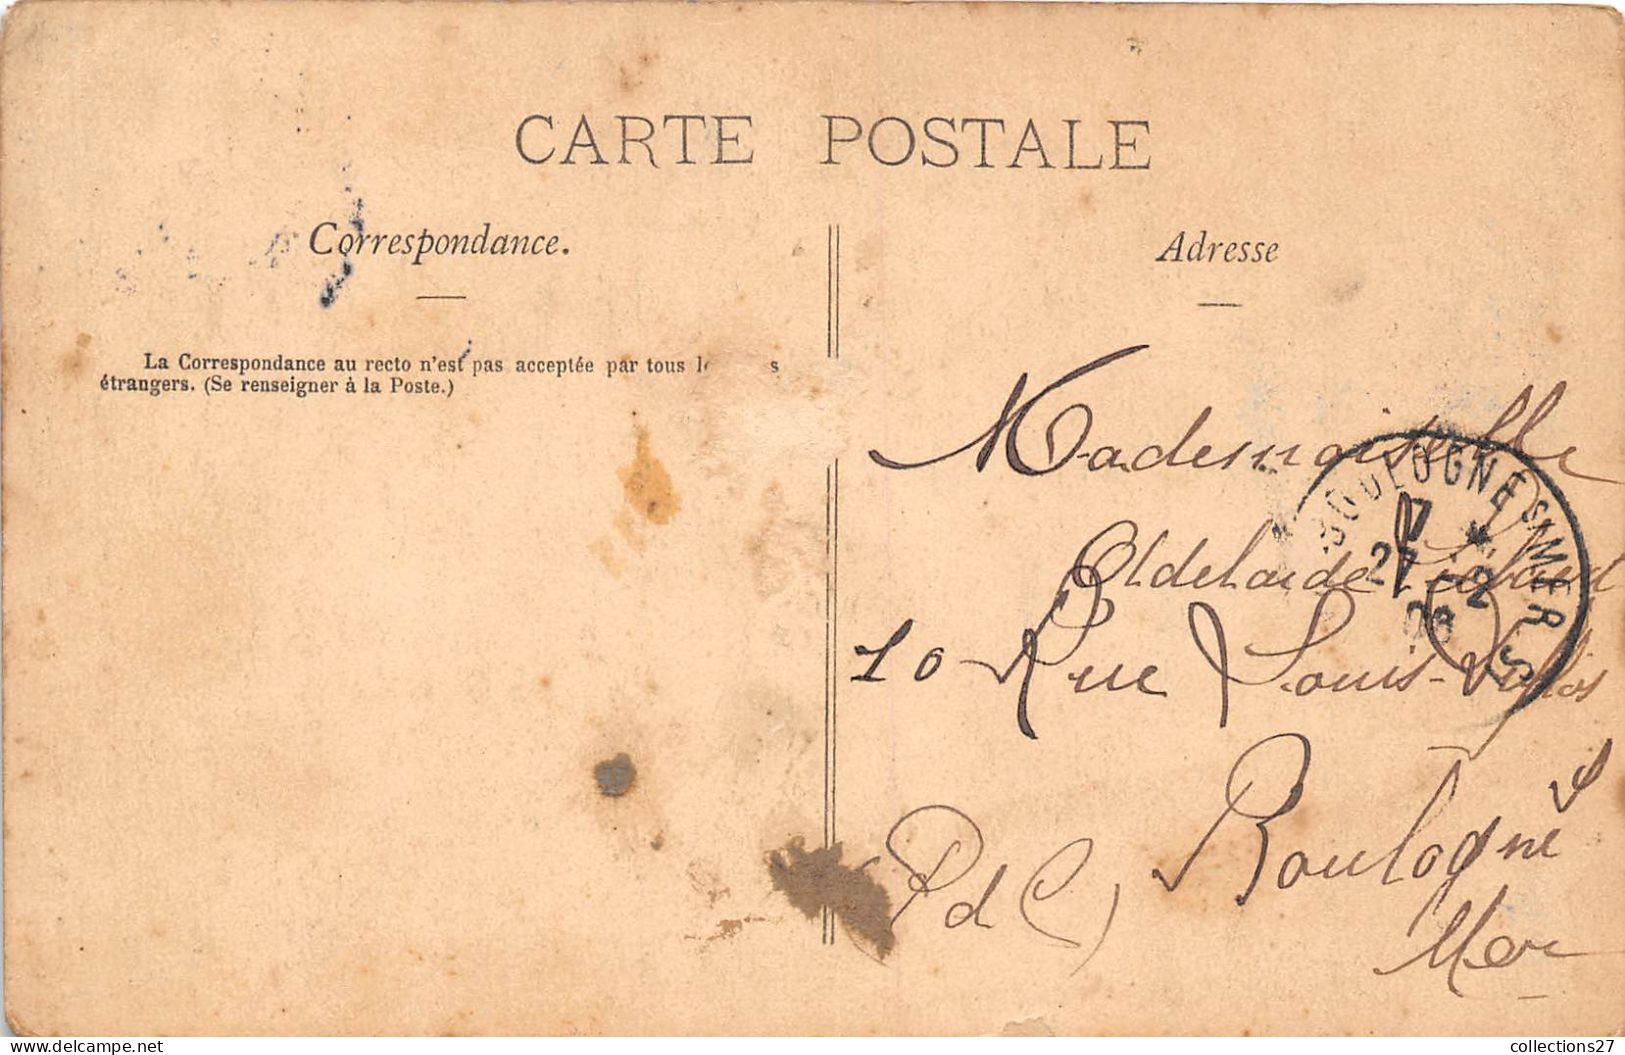 CARTE POSTALE
Correspondance.
La Correspondance au recto n'est pas acceptée par tous le s
étrangers. (Se renseigner à la Poste.)
Adresse
Mademoiselle
Adelaide
10 Rue Louis
Boulogne s
Mer
(P d C)
BOULOGNE S/MER
7 *
27 -2
08
delcampe.net
collections27